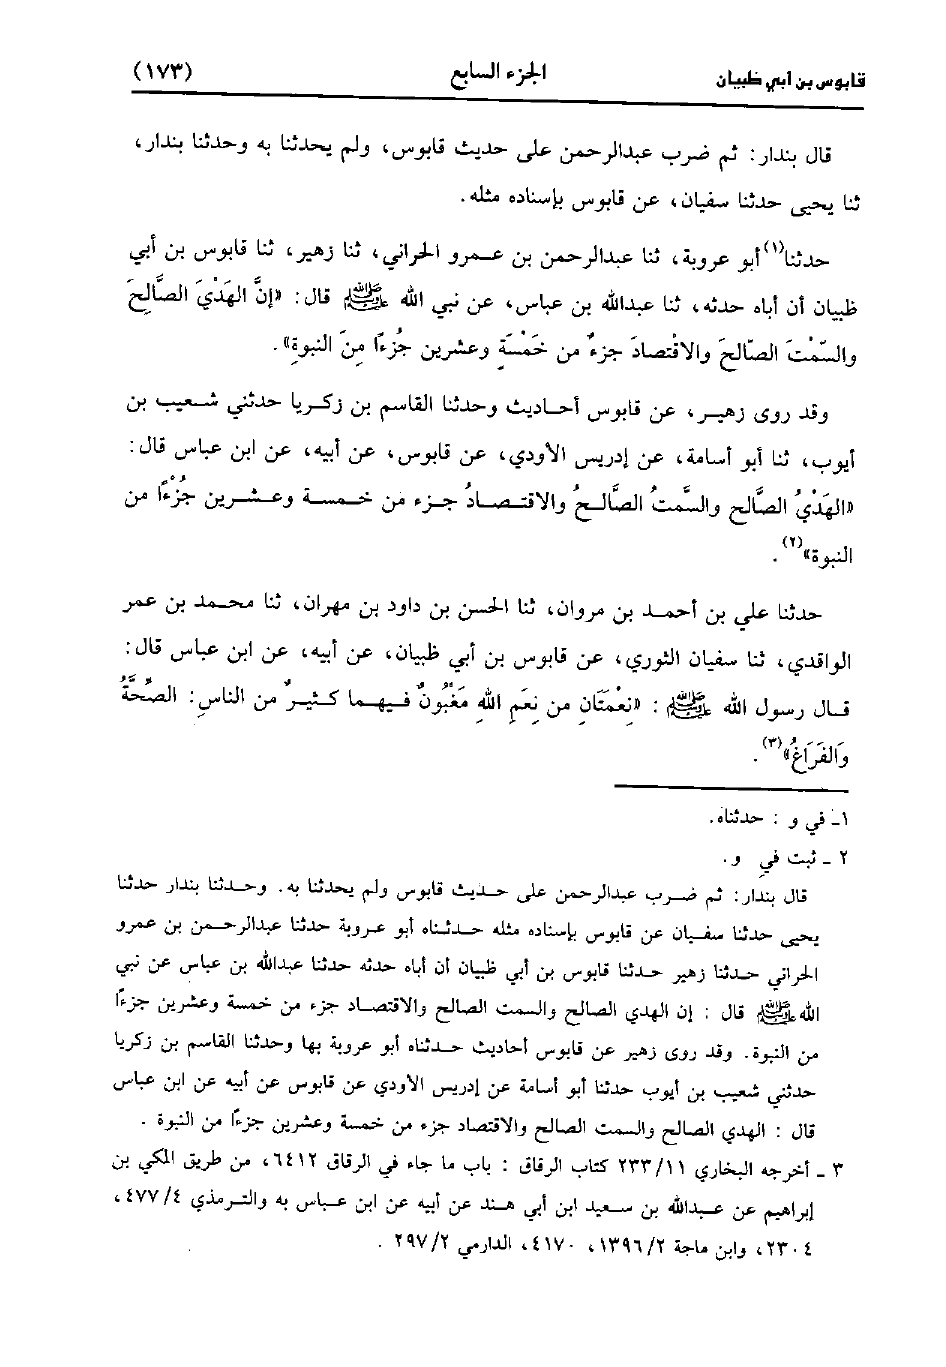 قابوس بن أبي ظبيان الجزء السابع (١٧٣)
قال بندار: ثم ضرب عبدالرحمن على حديث قابوس، ولم يحدثنا به وحدثنا بندار،
ثنا يحيى حدثنا سفيان، عن قابوس بإسناده مثله.
حدثنا(١) أبو عروبة، ثنا عبدالرحمن بن عمرو الحراني، ثنا زهير، ثنا قابوس بن أبي
ظبيان أن أباه حدثه، ثنا عبدالله بن عباس، عن نبي الله ﷺ قال: «إنَّ الهَدْيَ الصَّالِحَ
والسَّمْتَ الصَّالحَ والاقْتصَادَ جزءٌ من خَمْسَةٍ وعشرين جُزءًا مِنَ النبوةِ».
وقد روى زهير، عن قابوس أحاديث وحدثنا القاسم بن زكريا حدثني شعيب بن
أيوب، ثنا أبو أسامة، عن إدريس الأودي، عن قابوس، عن أبيه، عن ابن عباس قال:
«الهَدْيُ الصَّالح والسَّمتُ الصَّالحُ والاقتصادُ جزء من خمسة وعشرين جُزْءًا من
النبوة»(٢).
حدثنا علي بن أحمد بن مروان، ثنا الحسن بن داود بن مهران، ثنا محمد بن عمر
الواقدي، ثنا سفيان الثوري، عن قابوس بن أبي ظبيان، عن أبيه، عن ابن عباس قال:
قال رسول الله ﷺ : «نِعْمَتَانِ من نِعَمِ اللهِ مَغْبُونٌ فيهما كثيرٌ من الناسِ: الصِّحَّةُ
وَالفَرَاغُ»(٣).
١ـ في و : حدثناه.
٢ ـ ثبت في و.
قال بندار: ثم ضرب عبدالرحمن على حديث قابوس ولم يحدثنا به. وحدثنا بندار حدثنا
يحيى حدثنا سفيان عن قابوس بإسناده مثله حدثناه أبو عروبة حدثنا عبدالرحمن بن عمرو
الحراني حدثنا زهير حدثنا قابوس بن أبي ظبيان أن أباه حدثه حدثنا عبدالله بن عباس عن نبي
الله ﷺ قال : إن الهدي الصالح والسمت الصالح والاقتصاد جزء من خمسة وعشرين جزءًا
من النبوة. وقد روى زهير عن قابوس أحاديث حدثناه أبو عروبة بها وحدثنا القاسم بن زكريا
حدثني شعيب بن أيوب حدثنا أبو أسامة عن إدريس الأودي عن قابوس عن أبيه عن ابن عباس
قال : الهدي الصالح والسمت الصالح والاقتصاد جزء من خمسة وعشرين جزءًا من النبوة .
٣ ـ أخرجه البخاري ٢٣٣/١١ كتاب الرقاق : باب ما جاء في الرقاق ٦٤١٢، من طريق المكي بن
إبراهيم عن عبدالله بن سعيد ابن أبي هند عن أبيه عن ابن عباس به والترمذي ٤٧٧/٤،
٢٣٠٤، وابن ماجة ١٣٩٦/٢، ٤١٧٠، الدارمي ٢٩٧/٢ .